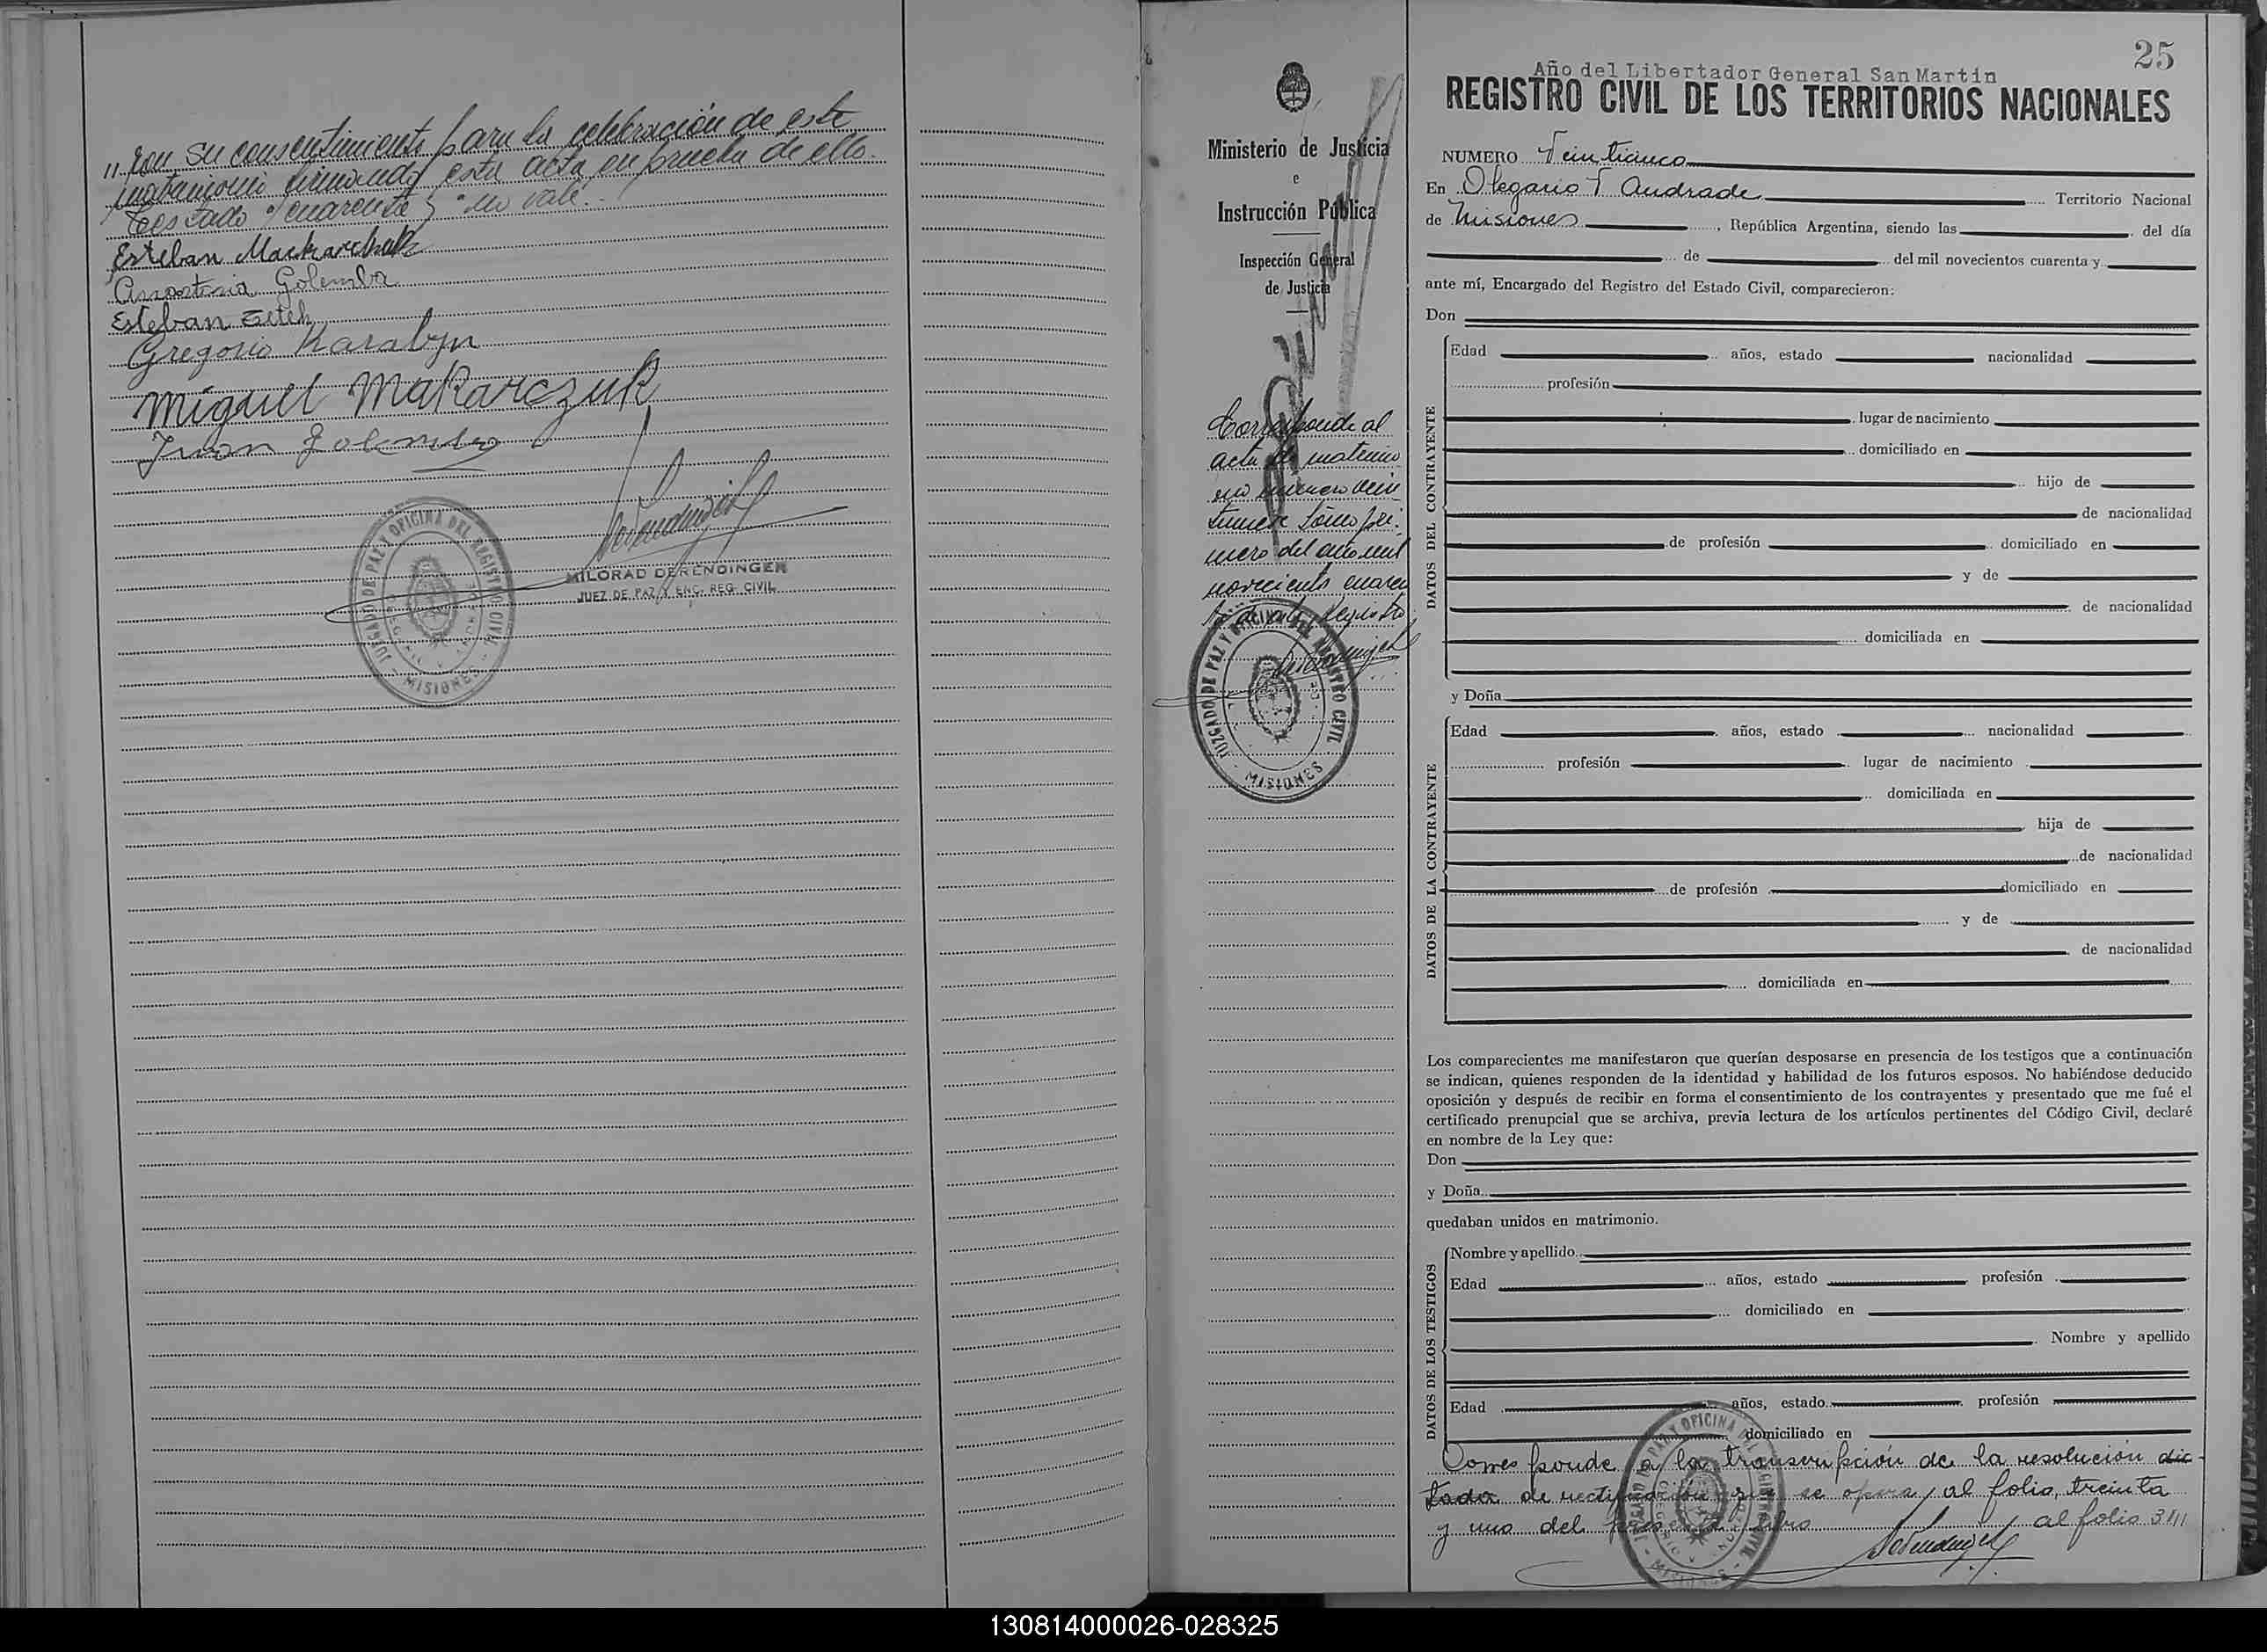 " ron su consentimiento para la celebración de este
matrimonio firmando esta acta en prueba de ello.
Testado "cuarenta" no vale.
Esteban Mackarchuk
Anastasia Golemba
Esteban
Gregorio Karabyn
Miguel Makarczuk
Juan Golemba
JUZGADO DE PAZ Y OFICINA DEL REGISTRO CIVIL
MISIONES
MILORAD DERENDINGER
JUEZ DE PAZ Y ENC. REG. CIVIL
Ministerio de Justicia
e
Instrucción Pública
Inspección General
de Justicia
Corresponde al
acta de matrimo
nio numero vein
tomo pri
mero del año mil
novecientos cuaren
ta de este Registro
JUZGADO DE PAZ Y OFICINA DEL REGISTRO CIVIL
MISIONES
25
Año del Libertador General San Martín
REGISTRO CIVIL DE LOS TERRITORIOS NACIONALES
NUMERO Veinticinco
En Olegario V. Andrade Territorio Nacional
de Misiones, República Argentina, siendo las del día
de del mil novecientos cuarenta y
ante mí, Encargado del Registro del Estado Civil, comparecieron:
Don
DATOS DEL CONTRAYENTE
Edad años, estado nacionalidad
profesión
lugar de nacimiento
domiciliado en
hijo de
de nacionalidad
de profesión domiciliado en
y de
de nacionalidad
domiciliada en
y Doña
DATOS DE LA CONTRAYENTE
Edad años, estado nacionalidad
profesión lugar de nacimiento
domiciliada en
hija de
de nacionalidad
de profesión domiciliado en
y de
de nacionalidad
domiciliada en
Los comparecientes me manifestaron que querían desposarse en presencia de los testigos que a continuación
se indican, quienes responden de la identidad y habilidad de los futuros esposos. No habiéndose deducido
oposición y después de recibir en forma el consentimiento de los contrayentes y presentado que me fué el
certificado prenupcial que se archiva, previa lectura de los artículos pertinentes del Código Civil, declaré
en nombre de la Ley que:
Don
y Doña
quedaban unidos en matrimonio.
DATOS DE LOS TESTIGOS
Nombre y apellido
Edad años, estado profesión
domiciliado en
Nombre y apellido
Edad años, estado profesión
domiciliado en
Corresponde a la transcripción de la resolución dic-
tada de rectificación que se opera al folio treinta
y uno del presente libro al folio 31
JUZGADO DE PAZ Y OFICINA DEL REGISTRO CIVIL
MISIONES
130814000026-028325